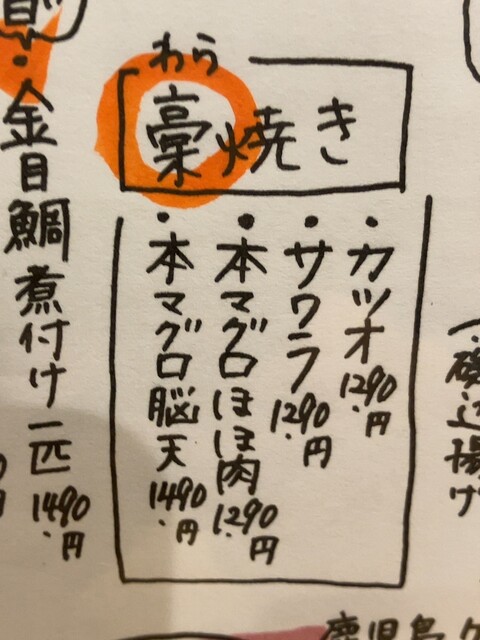 わら
藁焼き
・カツオ 1290円
・サワラ 1290円
・本マグロほほ肉 1290円
・本マグロ脳天 1490円
・金目鯛煮付け一匹 1490円
磯辺揚げ
鹿児島
円